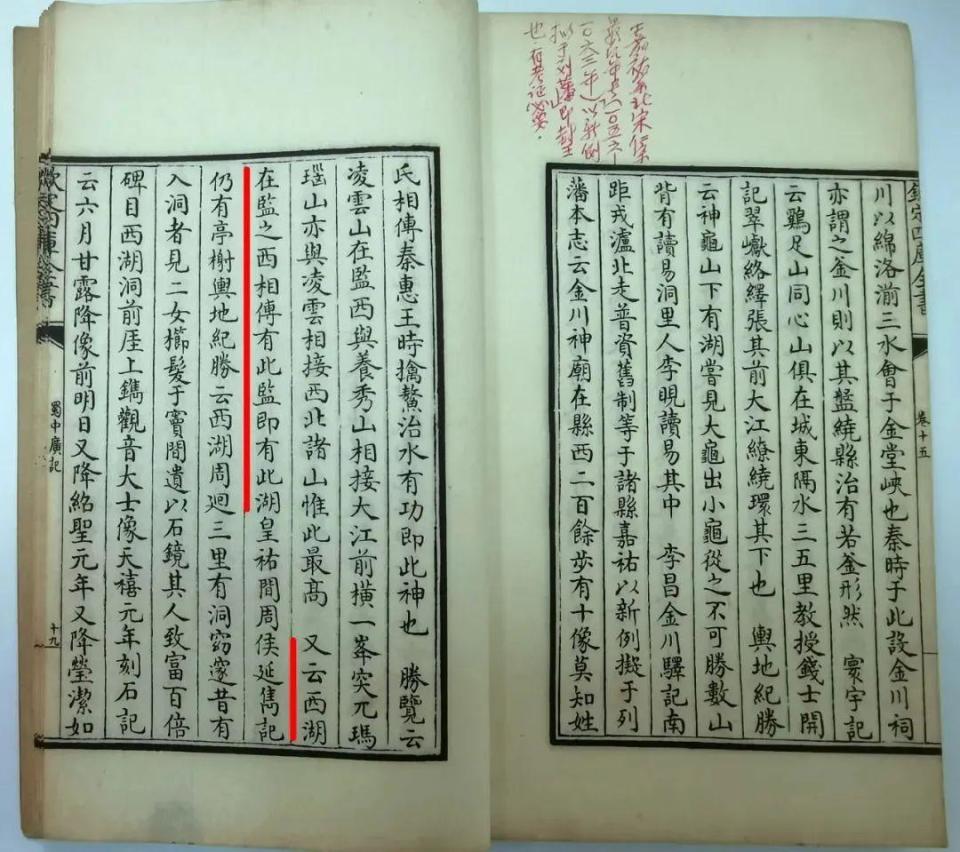 一〇六三年)以新例
也 有考证必要.
欽定四庫全書
卷十五
川以綿洛湔三水會于金堂峽也秦時于此設金川祠
亦謂之釜川則以其盤繞縣治有若釜形然　寰宇記
云鷄足山同心山俱在城東隅水三五里教授錢士開
記翠巘絡繹張其前大江繚繞環其下也　輿地紀勝
云神龜山下有湖嘗見大龜出小龜從之不可勝數山
背有讀易洞里人李晛讀易其中　李昌金川驛記南
距戎瀘北走普資舊制等于諸縣嘉祐以新例擬于列
藩本志云金川神廟在縣西二百餘步有十像莫知姓
氏相傳秦惠王時擒鰲治水有功即此神也　勝覽云
凌雲山在監西與養秀山相接大江前橫一峯突兀瑪
瑙山亦與凌雲相接西北諸山惟此最高　又云西湖
在監之西相傳有此監即有此湖皇祐間周侯延雋記
仍有亭榭輿地紀勝云西湖周廻三里有洞窈邃昔有
入洞者見二女櫛髮于竇間遺以石鏡其人致富百倍
碑目西湖洞前厓上鐫觀音大士像天禧元年刻石記
云六月甘露降像前明日又降紹聖元年又降瑩潔如
欽定四庫全書
蜀中廣記
十九